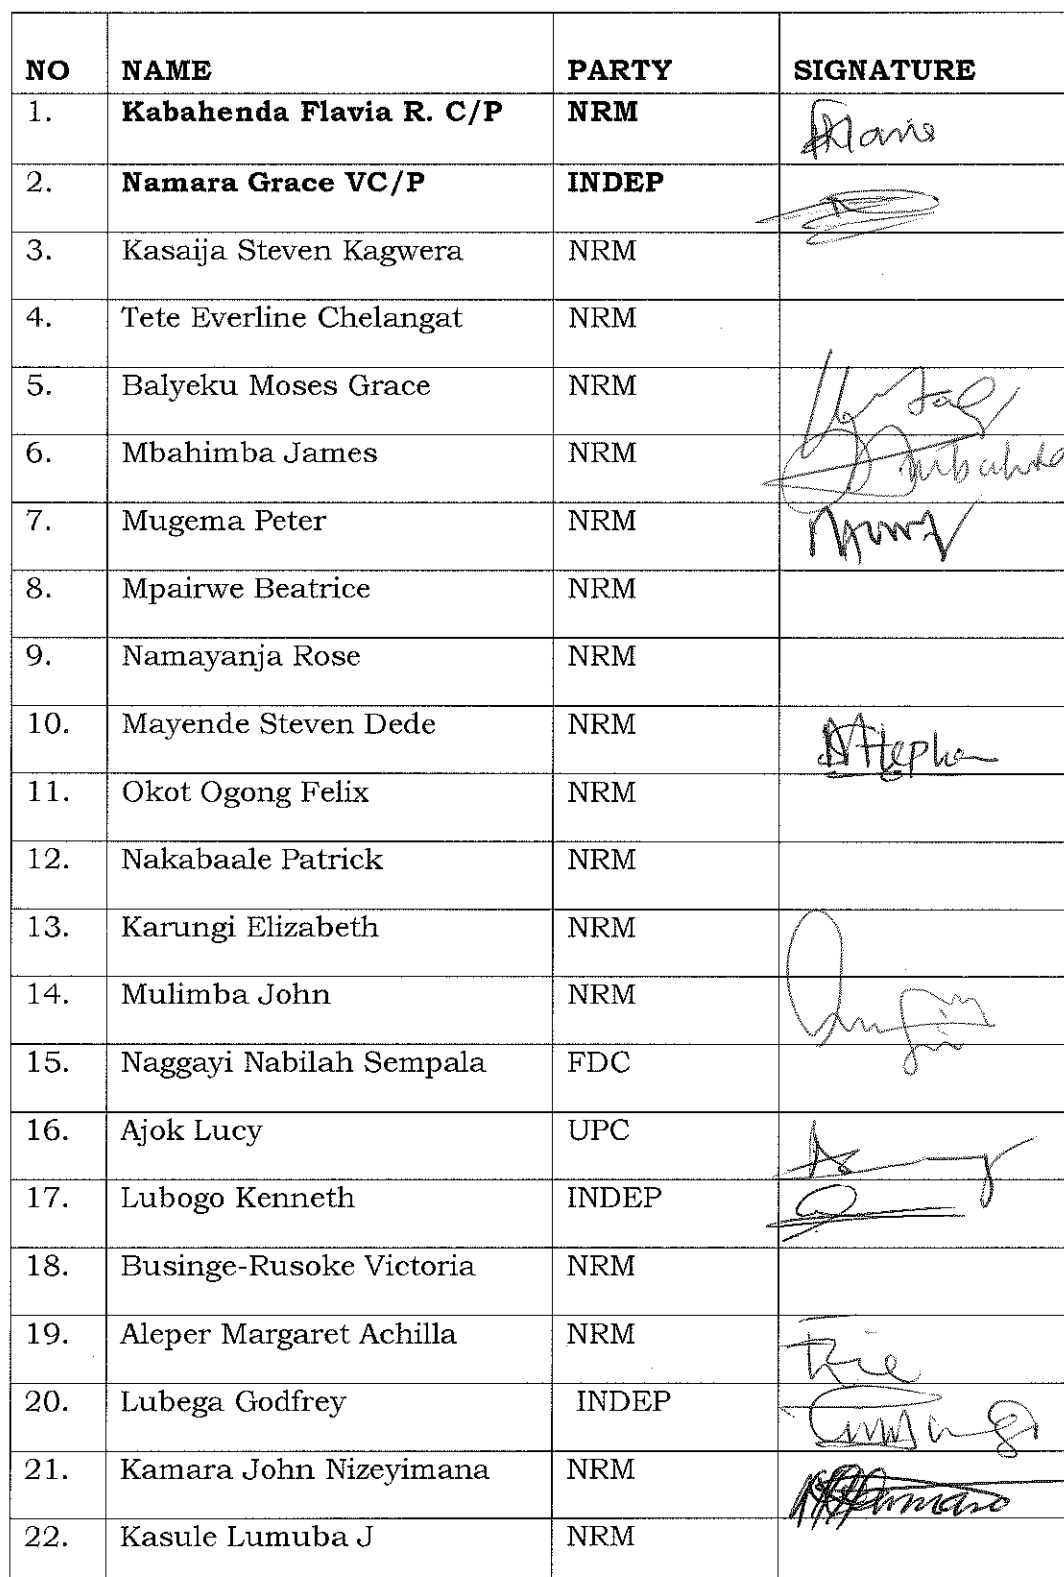 NO NAME PARTY SIGNATURE
1. Kabahenda Flavia R. C/P NRM
2. Namara Grace VC/P INDEP
3. Kasaija Steven Kagwera NRM
4. Tete Everline Chelangat NRM
5. Balyeku Moses Grace NRM
6. Mbahimba James NRM
7. Mugema Peter NRM
8. Mpairwe Beatrice NRM
9. Namayanja Rose NRM
10. Mayende Steven Dede NRM
11. Okot Ogong Felix NRM
12. Nakabaale Patrick NRM
13. Karungi Elizabeth NRM
14. Mulimba John NRM
15. Naggayi Nabilah Sempala FDC
16. Ajok Lucy UPC
17. Lubogo Kenneth INDEP
18. Businge-Rusoke Victoria NRM
19. Aleper Margaret Achilla NRM
20. Lubega Godfrey INDEP
21. Kamara John Nizeyimana NRM
22. Kasule Lumuba J NRM